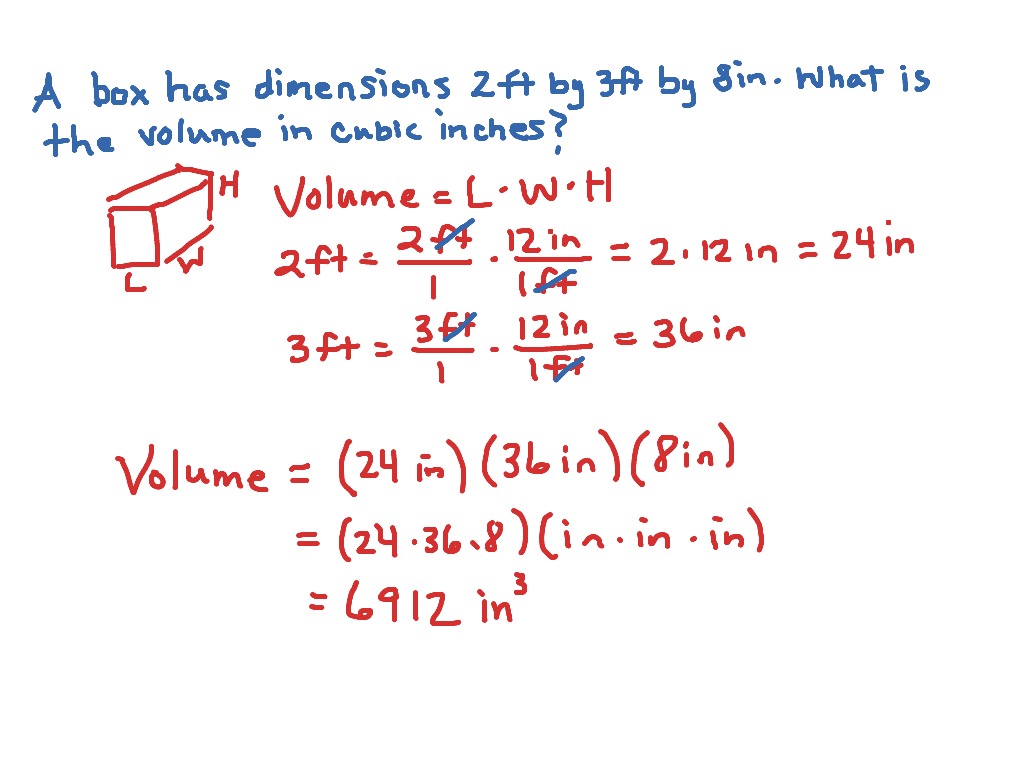 A box has dimensions 2ft by 3ft by 8in. What is
the volume in cubic inches?
H
W
L
Volume = L · W · H
2ft = 2ft/1 · 12in/1ft = 2 · 12in = 24in
3ft = 3ft/1 · 12in/1ft = 36in
Volume = (24 in)(36in)(8in)
= (24 · 36 · 8)(in · in · in)
= 6912 in³